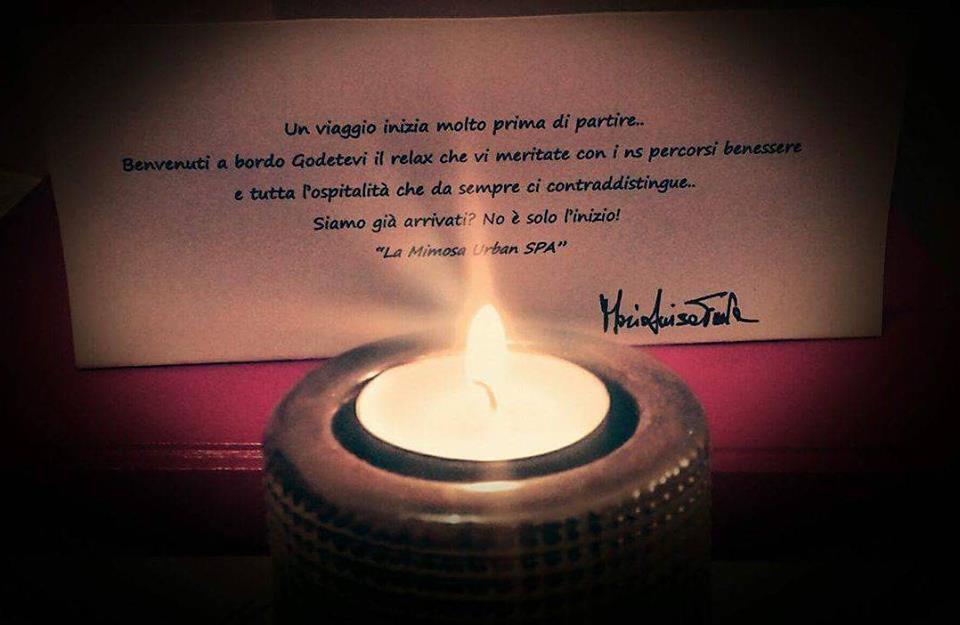 Un viaggio inizia molto prima di partire..
Benvenuti a bordo Godetevi il relax che vi meritate con i ns percorsi benessere
e tutta l'ospitalità che da sempre ci contraddistingue..
Siamo già arrivati? No è solo l'inizio!
"La Mimosa Urban SPA"
Maria Luisa